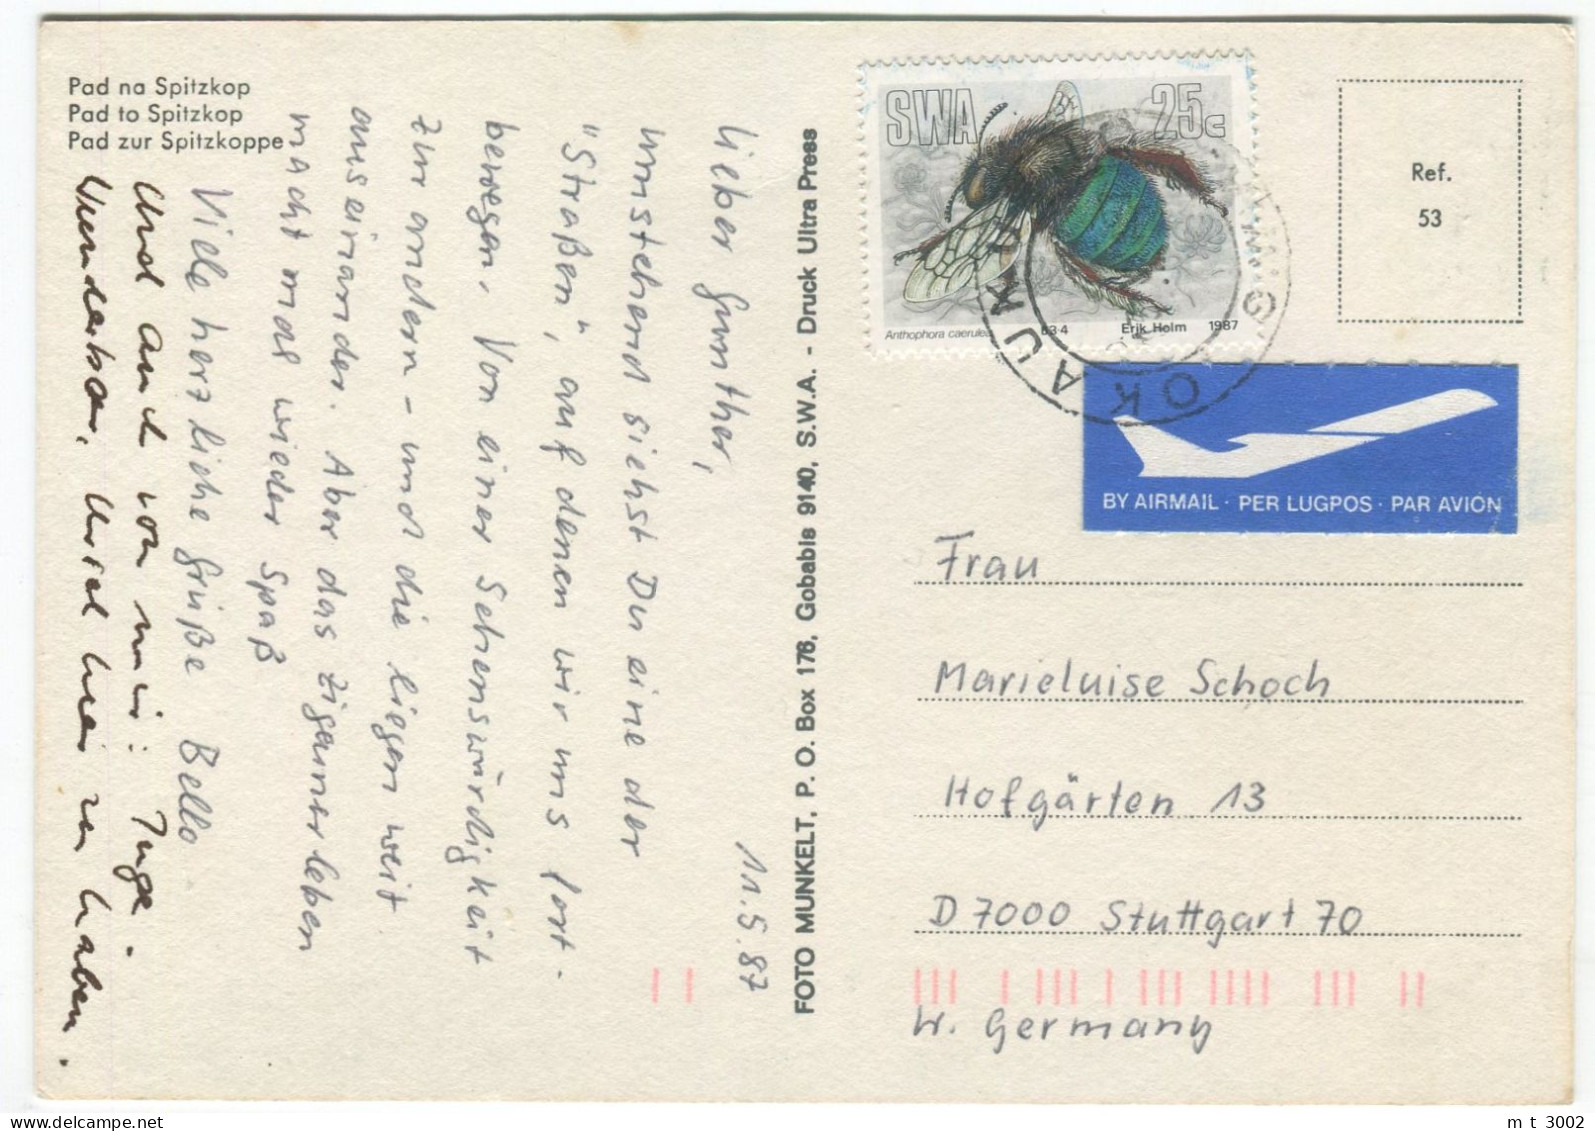 Pad na Spitzkop
Pad to Spitzkop
Pad zur Spitzkoppe
11.5.87
Lieber Gunther,
umstehend siehst Du eine der
"Straßen", auf denen wir uns fort-
bewegen. Von einer Sehenswürdigkeit
zur andern - und die liegen weit
auseinander. Aber das Zigeunerleben
macht mal wieder Spaß
Viele herzliche Grüße Bello
Und auch von mir: Inge.
Wunderbar, Ursel hier zu haben.
FOTO MUNKELT, P. O. Box 176, Gobabis 9140, S.W.A. - Druck Ultra Press
SWA 25c
Anthophora caerulea 53·4 Erik Holm 1987
OKAUKU
Ref.
53
BY AIRMAIL · PER LUGPOS · PAR AVION
Frau
Marieluise Schoch
Hofgärten 13
D 7000 Stuttgart 70
W. Germany
m t 3002